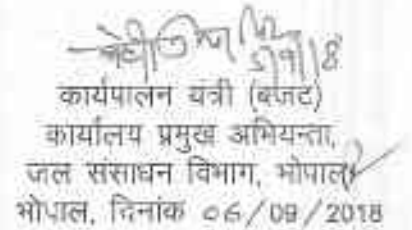 5/9/18
कार्यपालन यंत्री (बजट)
कार्यालय प्रमुख अभियन्ता,
जल संसाधन विभाग, भोपाल
भोपाल, दिनांक 06/09/2018